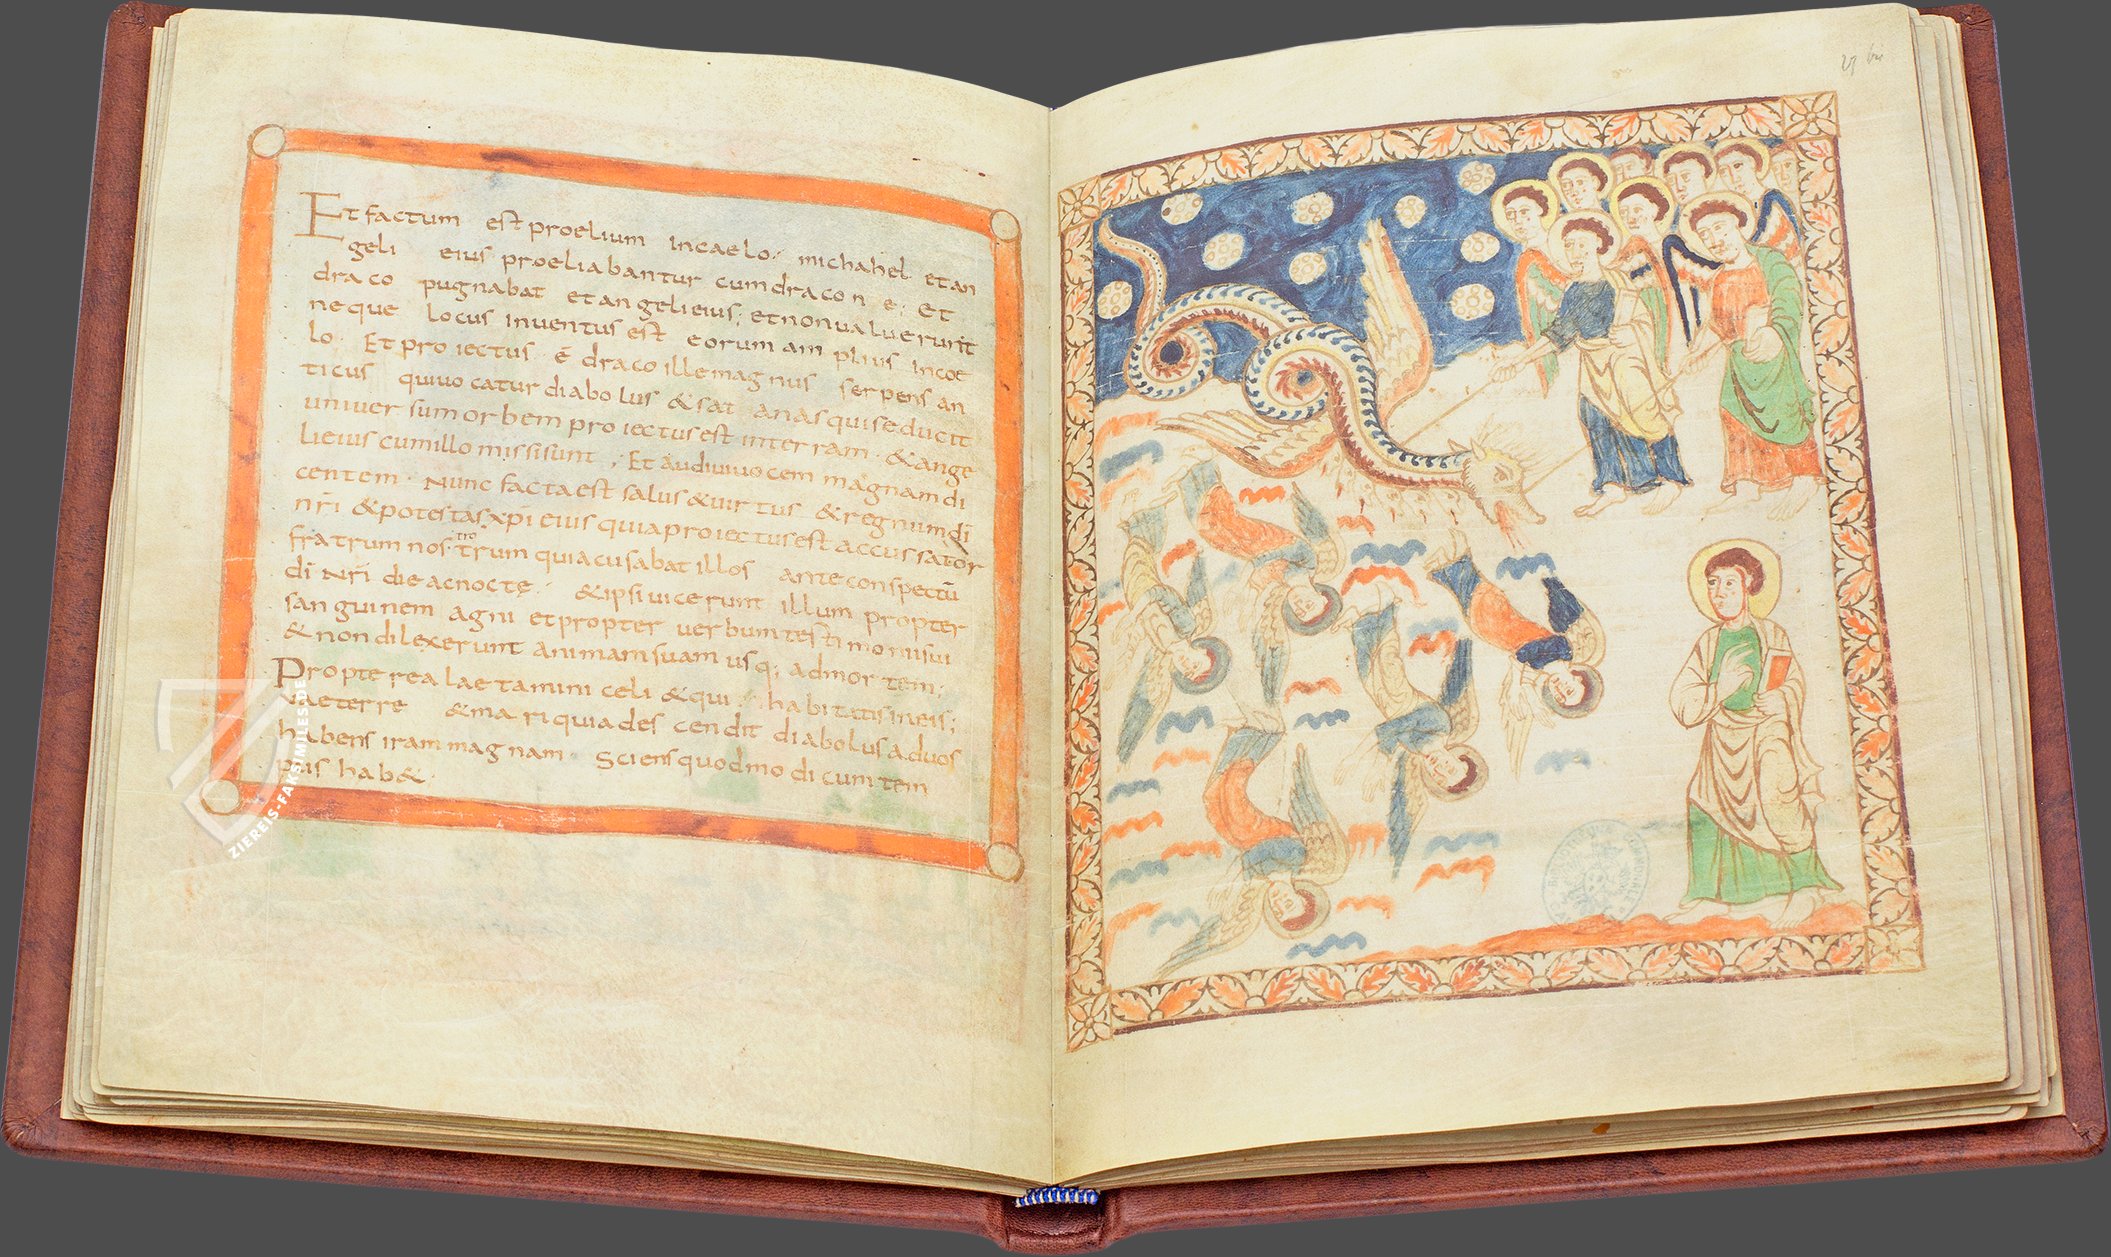 Et factum est proelium incaelo; michahel et an
geli eius proeliabantur cum dracone; Et
draco pugnabat et angeli eius; et non ualuerunt
neque locus inuentus est eorum amplius incoe
lo. Et proiectus ē draco ille magnus serpens an
ticus qui uocatur diabolus & satanas qui seducit
uniuersum orbem proiectus est interram. & ange
li eius cum illo missi sunt; Et audiui uocem magnam di
centem. Nunc facta est salus & uirtus & regnum dī
nr̄i & potestas xp̄i eius quia proiectus est accussator
fratrum nostrum quiacusabat illos ante conspectū
dī nr̄i die acnocte; & ipsi uicerunt illum propter
sanguinem agni et propter uerbum testimonii sui
& non dilexerunt animam suam usq; ad mortem;
Propterea laetamini celi & qui habitatis in eis;
uae terre & mari quia descendit diabolus aduos
habens iram magnam. Sciens quod modicum tem
pus hab&
ZIEREIS-FAKSIMILES.DE